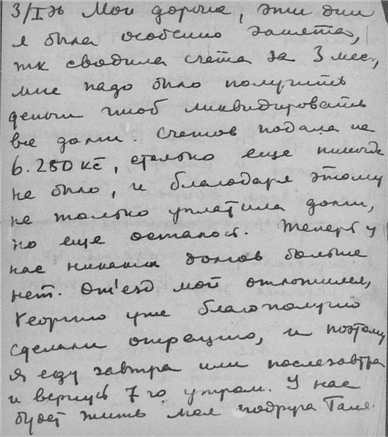 3/I 36 Мои дорогие, эти дни
я была особенно занята,
тк сводила счета за 3 мес,
мне надо было получить
деньги чтоб ликвидировать
все долги. Счетов подала на
6.280 kč, столько еще никогда
не было, и благодаря этому
не только уплатила долги,
но еще осталось. Теперь у
нас никаких долгов больше
нет. От'езд мой отложился,
Георгию уже благополучно
сделали операцию, и поэтому
я еду завтра или послезавтра
и вернусь 7го утром. У нас
будет жить моя подруга Галя.